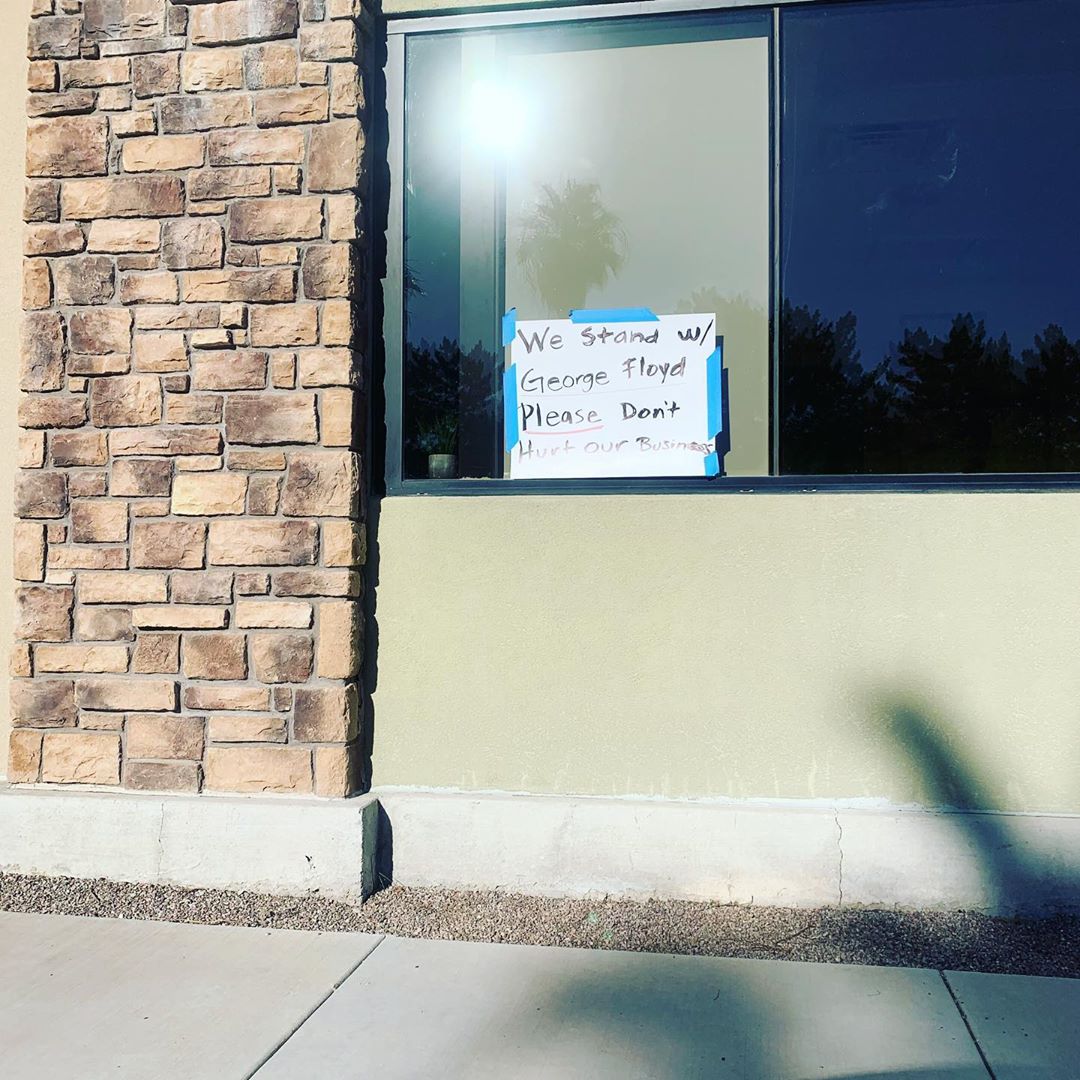 We Stand w/
George Floyd
Please Don't
Hurt our Business